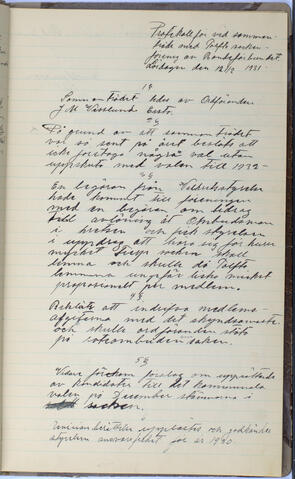 Protokoll för vid samman-
träde med Tolfts socken-
förening av Bondeförbundet
Lördagen den 12/12 1931
1 §
Sammanträdet ledes av Ordföranden
J. M. Wesslund
2 §
På grund av att sammanträdet
var så sent på året beslöts att
icke företaga några val utan
uppskuta med valen till 1932
3 §
En begäran från
hade kommit till föreningen
med en begäran om bidrag
till avlöning åt Ombudsman
i kretsen och fick styrelsen
i uppdrag att höra sig för huru
mycket socken skall
lemna och skulle då Tolfta
lemna ungefär lika mycket
proportionellt per medlem.
4 §
Beslöts att indriva medlems-
afgifterna med det skyndsammaste
och skulle ordföranden stöta
på i ombuden saken.
5 §
Vidare förekom förslag om upprättande
av kandidater till det kommunala
valen på December stämman i
socken.
upplästes och godkändes
styrelsen för år 1930